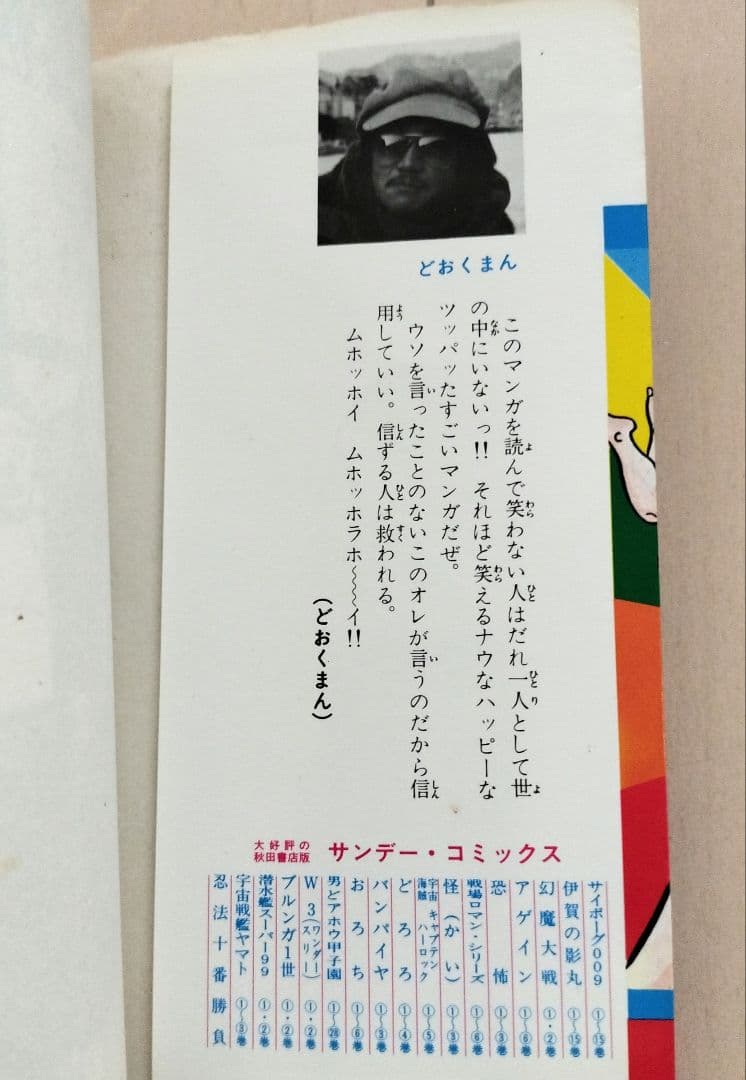 どおくまん
このマンガを読んで笑わない人はだれ一人として世
の中にいないっ!! それほど笑えるナウなハッピーな
ツッパッたすごいマンガだぜ。
ウソを言ったことのないこのオレが言うのだから信
用していい。信ずる人は救われる。
ムホッホイ ムホッホラホ〜〜〜イ!!
(どおくまん)
大好評の
秋田書店版
サンデー・コミックス
サイボーグ009 ①〜⑮巻
伊賀の影丸 ①〜⑮巻
幻魔大戦 ①・②巻
アゲイン ①〜⑥巻
恐怖 ①〜③巻
戦場ロマン・シリーズ ①〜⑥巻
怪(かい) ①〜③巻
宇宙海賊キャプテンハーロック ①〜⑤巻
どろろ ①〜④巻
バンパイヤ ①〜③巻
おろち ①〜⑥巻
男どアホウ甲子園 ①〜㉘巻
W3(ワンダースリー) ①・②巻
ブルンガ1世 ①・②巻
潜水艦スーパー99 ①・②巻
宇宙戦艦ヤマト ①〜③巻
忍法十番勝負